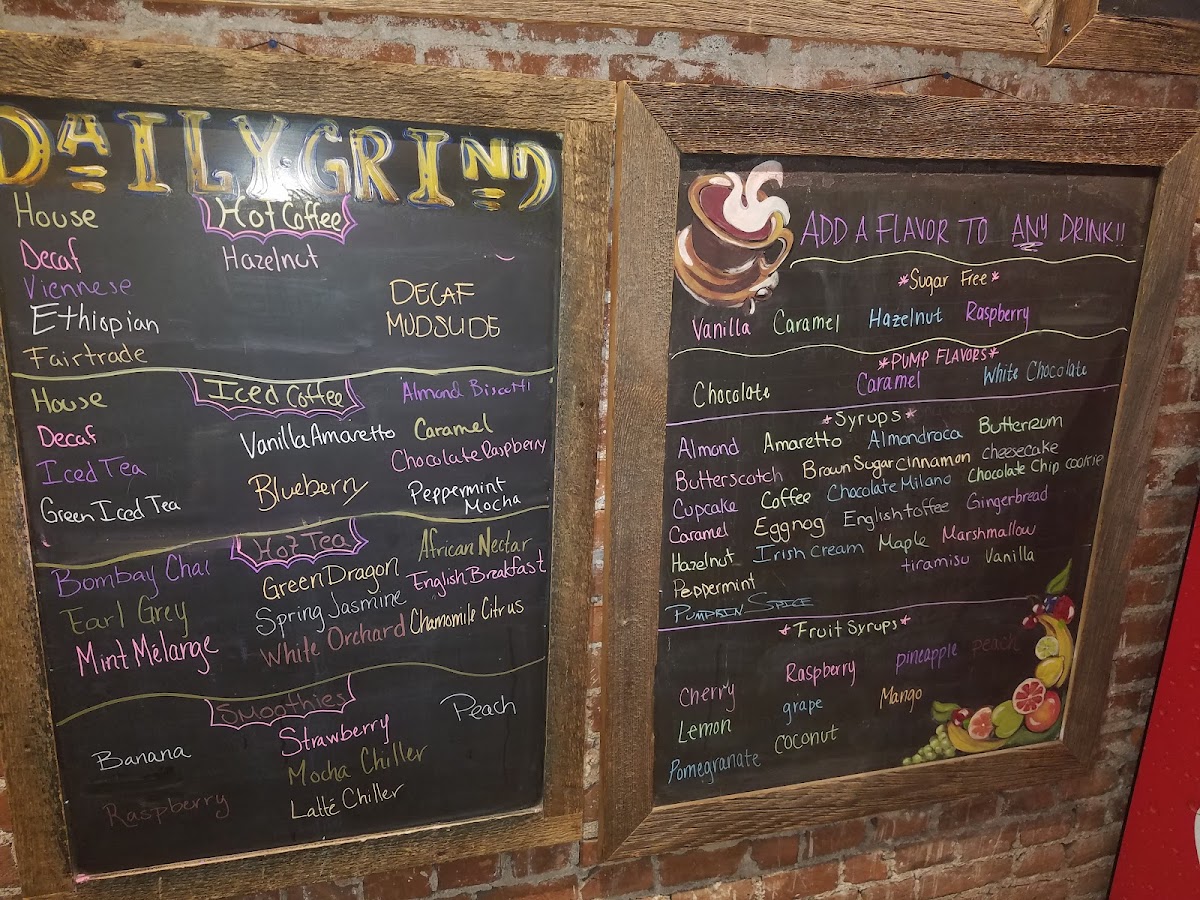 DAILY GRIND
Hot Coffee
House
Decaf
Hazelnut
Viennese
DECAF
MUDSLIDE
Ethiopian
Fairtrade
Iced Coffee
House
Almond Biscotti
Decaf
Vanilla Amaretto
Caramel
Iced Tea
Chocolate Raspberry
Green Iced Tea
Blueberry
Peppermint
Mocha
Hot Tea
Bombay Chai
Green Dragon
African Nectar
Earl Grey
Spring Jasmine
English Breakfast
Mint Mélange
White Orchard
Chamomile Citrus
Smoothies
Banana
Strawberry
Peach
Raspberry
Mocha Chiller
Latté Chiller
ADD A FLAVOR TO ANY DRINK!!
*Sugar Free*
Vanilla Caramel Hazelnut Raspberry
*PUMP FLAVORS*
Chocolate Caramel White Chocolate
*Syrups*
Almond Amaretto Almondroca Butterrum
Butterscotch Brown Sugar Cinnamon cheesecake
Cupcake Coffee Chocolate Milano Chocolate Chip cookie
Caramel Eggnog English toffee Gingerbread
Hazelnut Irish Cream Maple Marshmallow
Peppermint tiramisu Vanilla
PUMPKIN SPICE
*Fruit Syrups*
Cherry Raspberry pineapple peach
Lemon grape Mango
Pomegranate coconut